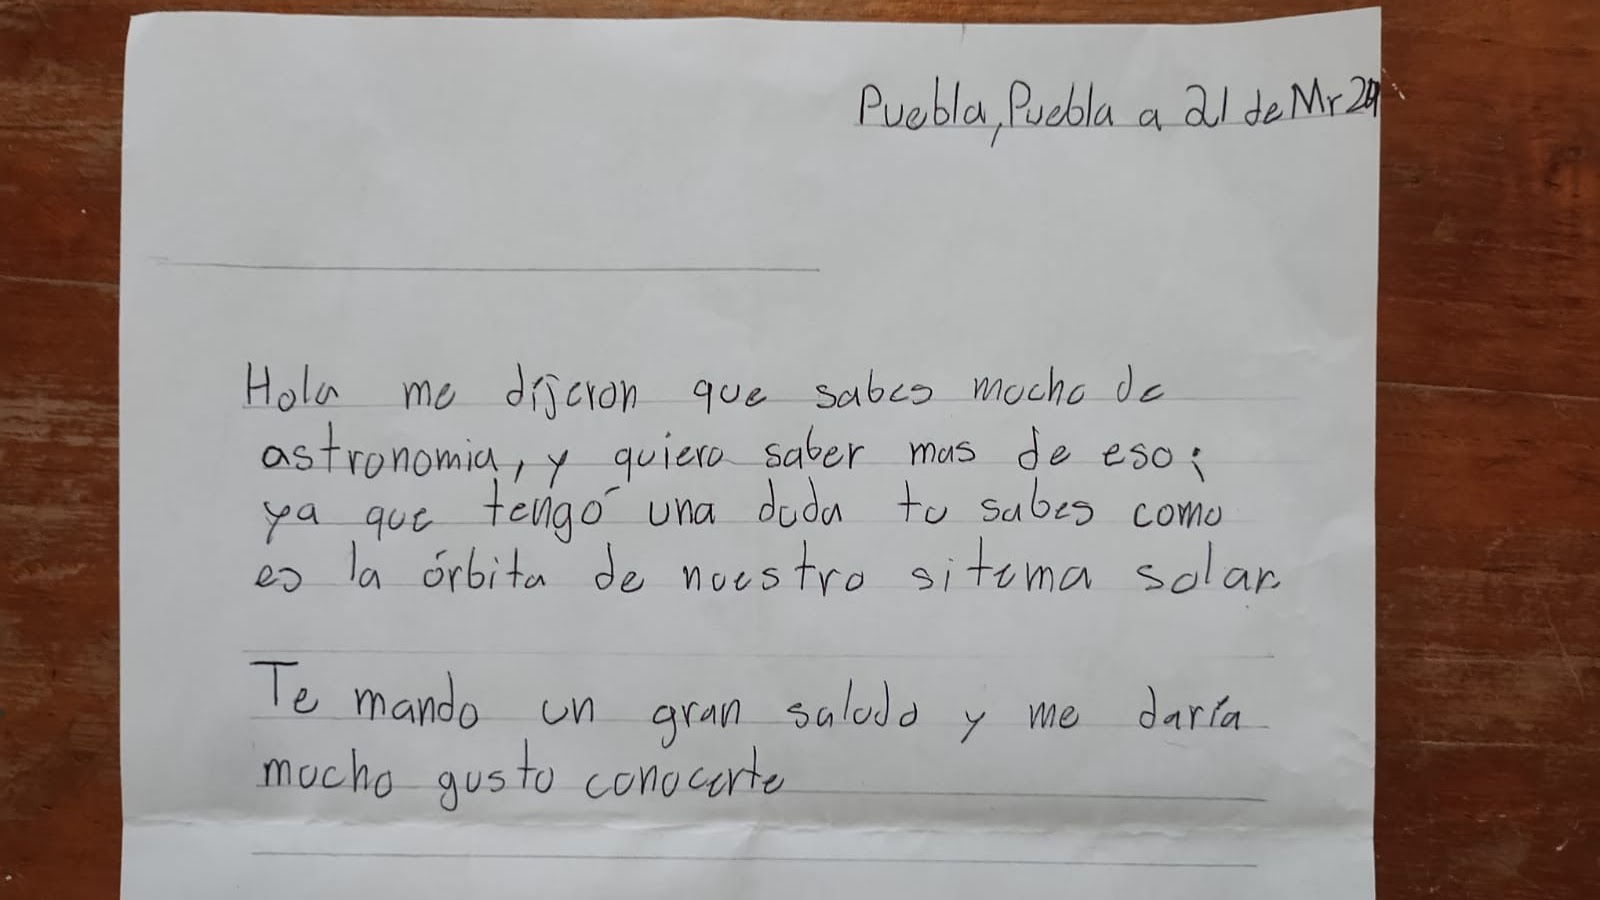 Puebla, Puebla a 21 de Mr 24
Hola me dijeron que sabes mucho de
astronomia, y quiero saber mas de eso;
ya que tengó una duda tu sabes como
es la órbita de nuestro sitema solar
Te mando un gran saludo y me daría
mucho gusto conocerte